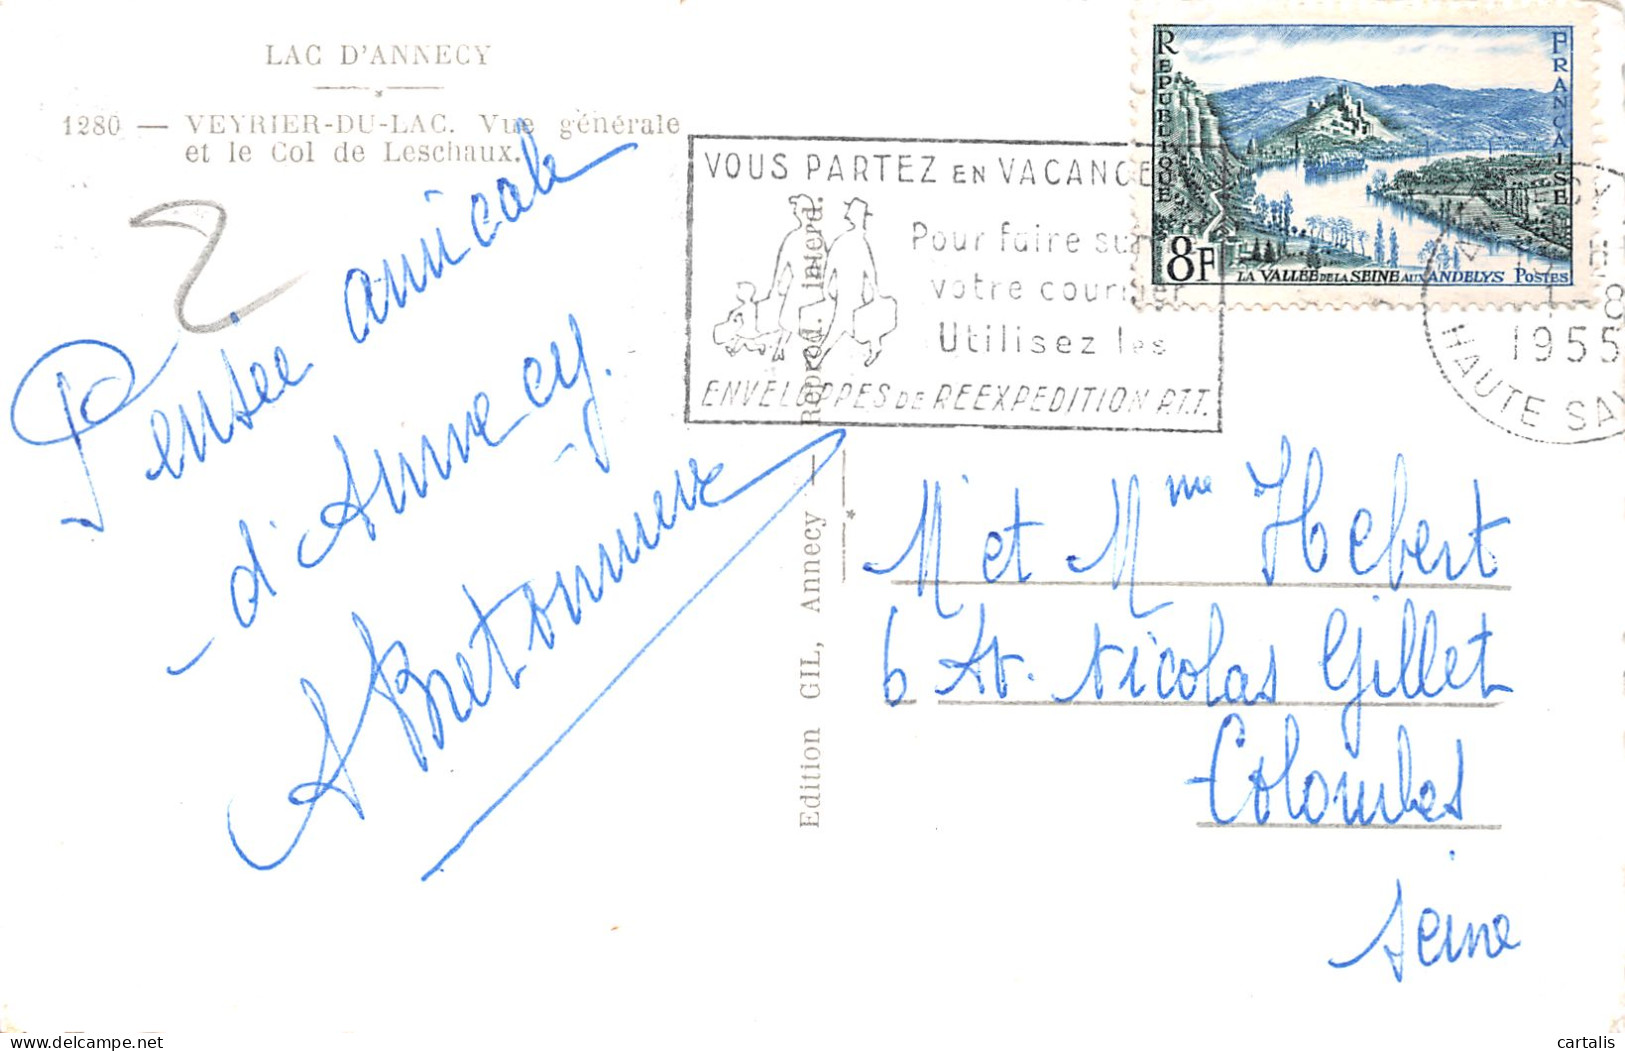 LAC D'ANNECY
1280 — VEYRIER-DU-LAC. Vue générale
et le Col de Leschaux.
2
Pensée amicale
d'Annecy.
ABretonneux
Edition GIL, Annecy — Reprod. interd.
VOUS PARTEZ EN VACANCE
Pour faire su
votre courrier
Utilisez les
ENVELOPPES DE REEXPEDITION P.T.T.
REPUBLIQUE
FRANÇAISE
8F
LA VALLÉE DE LA SEINE AUX ANDELYS POSTES
1-8
1955
HAUTE SAV
M et Mme Hebert
6 Av. Nicolas Gillet
Colombes
Seine
delcampe.net
cartalis